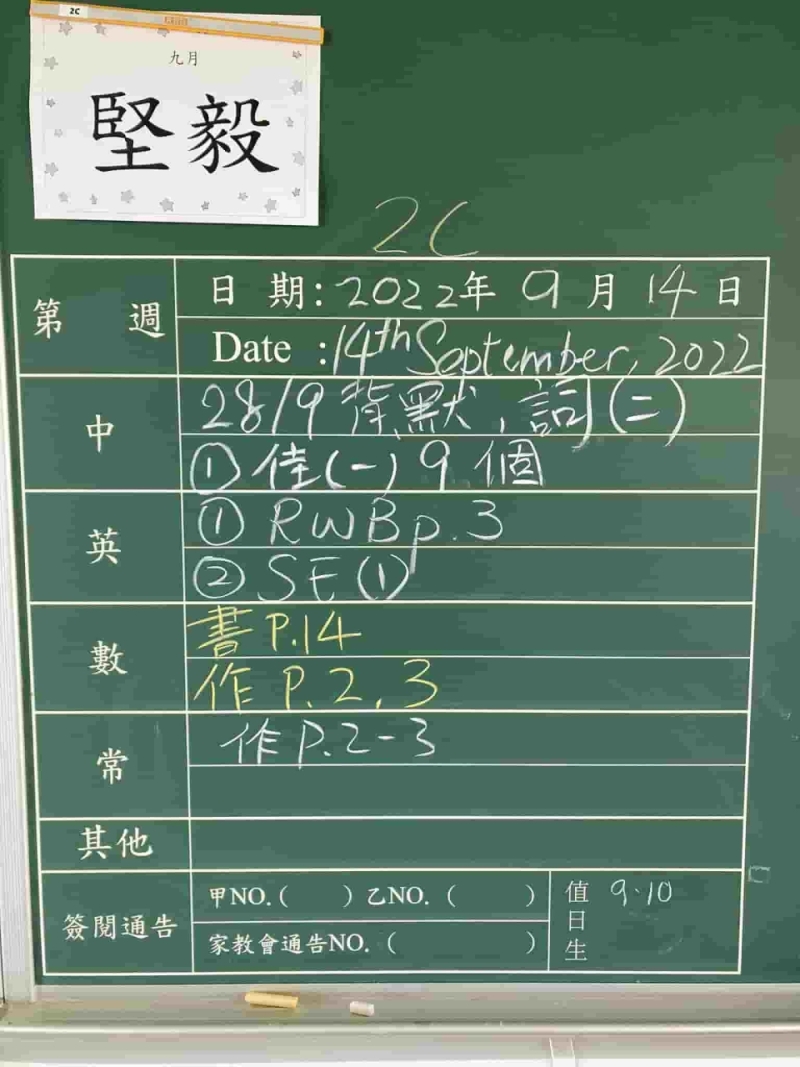 2C
九月
堅毅
2C
第 週
日 期：2022年 9 月 14 日
Date :14th September, 2022
中
28/9 背默，詞(二)
① 佳(一) 9 個
英
① RWB p.3
② SE (1)
數
書 P.14
作 P.2, 3
常
作 P.2-3
其他
簽閱通告
甲NO.( ) 乙NO. ( )
家教會通告NO. ( )
值日生 9.10